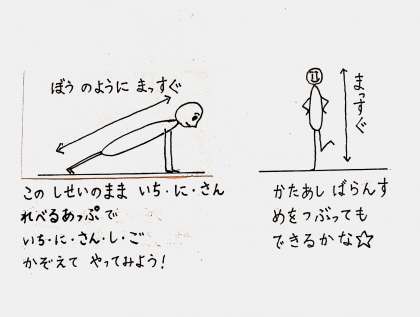 ぼう のように まっすぐ
この しせいのまま いち・に・さん
れべるあっぷ で
いち・に・さん・し・ご
かぞえて やってみよう!
まっすぐ
かたあし ばらんす
めをつぶっても
できるかな☆